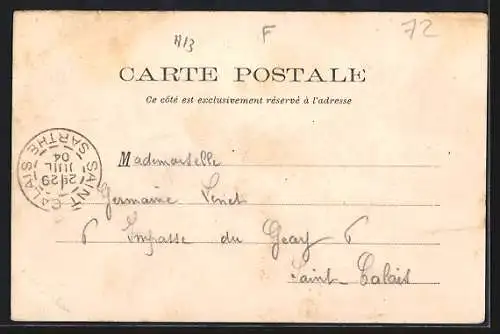 A13 F 72
CARTE POSTALE
Ce côté est exclusivement réservé à l'adresse
Mademoiselle
Germaine
6 Impasse du Geay 6
Saint-Calais
SAINT CALAIS
SARTHE
29
JUIL
04